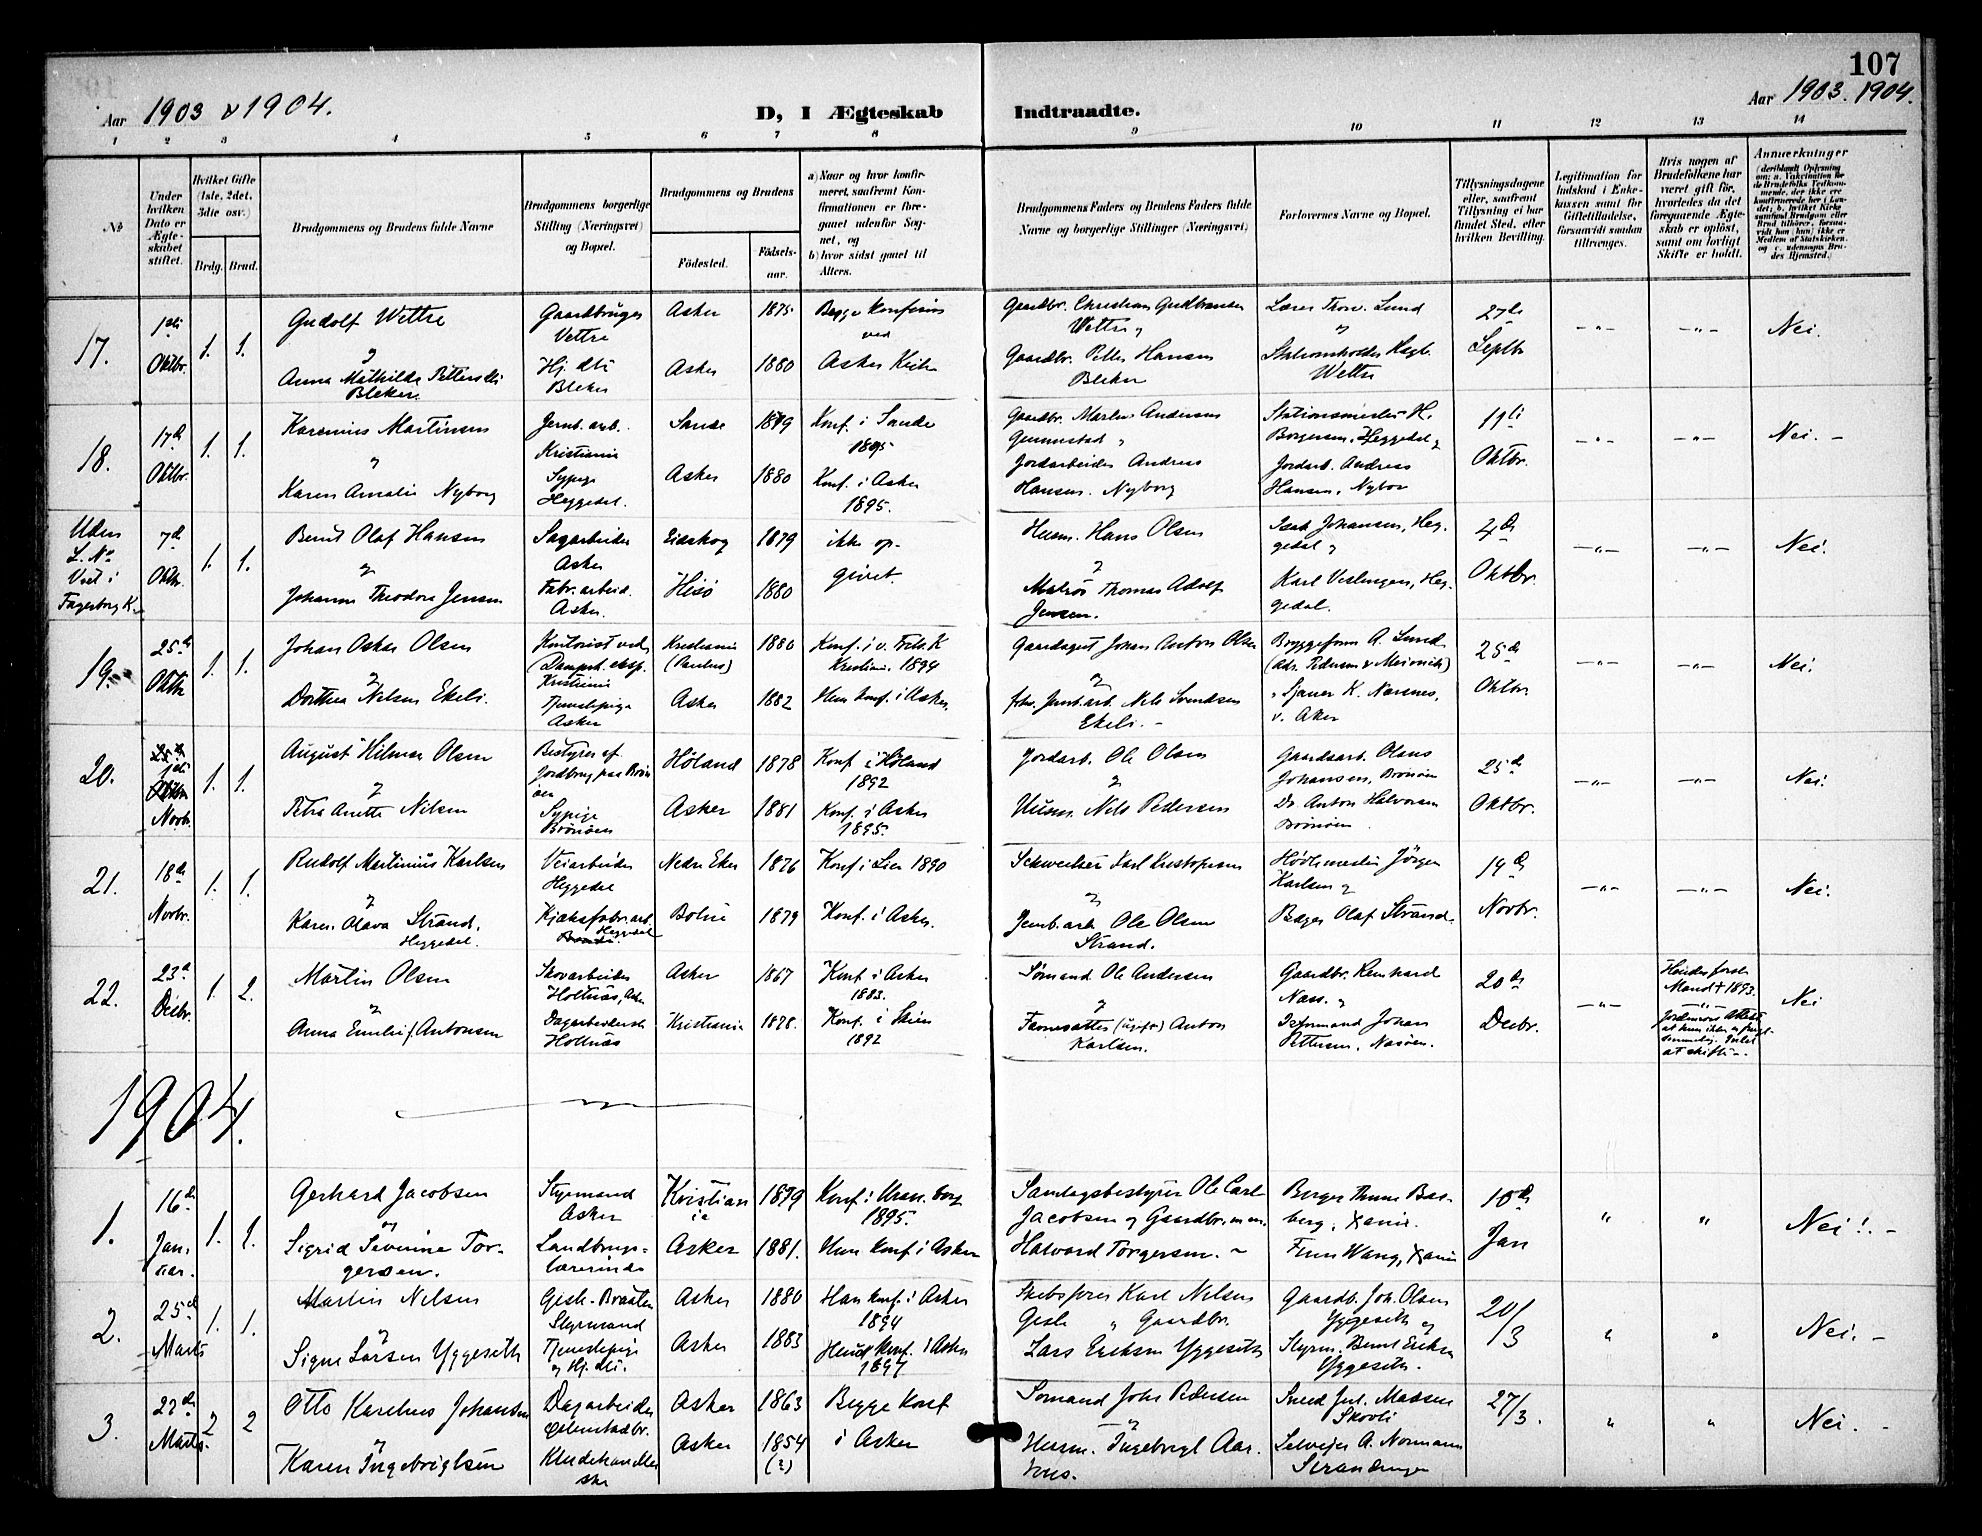 107
Aar 1903 & 1904.
D, I Ægteskab
Indtraadte.
Aar 1903. 1904.
1 2 3 4 5 6 7 8 9 10 11 12 13 14
No
Under hvilken Dato er Ægteskabet stiftet.
Hvilket Gifte (1ste, 2det, 3die osv.)
Brdg. Brud.
Brudgommens og Brudens fulde Navne
Brudgommens borgerlige Stilling (Næringsvei) og Bopæl.
Brudgommens og Brudens
Fødested.
Fødsels-aar.
a) Naar og hvor konfirmeret, saafremt Konfirmationen er foregaaet udenfor Sognet, og
b) hvor sidst gaaet til Alters.
Brudgommens Faders og Brudens Faders fulde Navne og borgerlige Stillinger (Næringsvei)
Forlovernes Navne og Bopæl.
Tillysningsdagene eller, saafremt Tillysning ei har fundet Sted, efter hvilken Bevilling.
Legitimation for Indskud i Enkekassen samt for Giftetilladelse, forsaavidt saadan tiltrænges.
Hvis nogen af Brudefolkene har været gift før, hvorledes da det foregaaende Ægteskab er opløst, samt om lovligt Skifte er holdt.
Anmerkninger
(deriblandt Oplysning om: a. Vakcination for de Brudefolks Vedkommende, der ikke ere konfirmerede her i Landet; b. hvilket Kirkesamfund Brudgom eller Brud tilhører, forsaavidt han (hun) ikke er Medlem af Statskirken, og c. udensogns Brudes Hjemsted.)
17. 1ste Oktbr. 1. 1.
Gudolf Wettre
Gaardbruger Vettre
Asker 1875
Begge konfirm. ved
Gaardbr. Christian Gudbransen Wettre &
Lærer Thorv. Lund &
27de Septbr
Nei.
Anna Mathilde Pettersdtr Bleker.
Hj. dtr Bleker
Asker 1880 Asker Kirke
Gaardbr. Petter Hansen Bleker
Wettre
18. 17de Oktbr. 1. 1.
Karenius Martinsen
Jernb. arb. Kristiania
Sande 1879 Konf. i Sande 1895
Gaardbr. Martin Andersen
Stationsmester H. Borgersen, Heggedal &
11te Oktbr.
Nei. -
Karen Amalie Nyborg
Sypige Heggedal.
Asker 1880 Konf. i Asker 1895.
Jordarbeider Andreas Hansen. Nyborg
Jordarb. Andreas Hansen, Nybor
Uden L. No Viet i Fagerborg K.
7de Oktbr. 1. 1.
Bernt Olaf Hansen
Sagarbeider Asker
Eidskog 1879 ikke opgivet.
Husm. Hans Olsen
Isak Johansen, Heggedal &
4de Oktbr.
Nei.
Johanne Theodora Jensen
Fabr. arbeid. Asker.
Hisö 1880
Matros Thomas Adolf Jensen.
Karl Veslengen, Heggedal.
19. 25de Oktbr 1. 1.
Johan Oskar Olsen
Kontorist ved Dampsk. eksp. Kristiania
Kristiania (Paulus) 1880
Konf. i v. Frik. K Kristiania 1894
Gaardagut Johan Anton Olsen
Bryggeform A. Lund
25de Oktbr.
Nei.
Dorthea Nilsen Ekeli.
Tjenestepige Asker
Asker 1882 Hun konf. i Asker.
forv. Jernb. arb. Nils Svendsen Ekeli. -
Sjauer K. Narsnes, v. Aker
20. 1ste Novbr. 1. 1.
August Hilmar Olsen
Bestyrer af Jordbrug paa Brønöen
Höland 1878 Konf i Höland 1892
Jordarb. Ole Olsen
Gaardsarb. Olaus Johansen, Brönöen
25de Oktbr.
Nei.
Petra Anette Nilsen
Sypige Brönöen
Asker 1881 Konf. i Asker 1895.
Husm. Nils Pedersen
Do Anton Halvorsen Brönöen
21. 18de Novbr. 1. 1.
Rudolf Martinius Karlsen
Veiarbeider Heggedal
Nedre Eker 1876 Konf i Lier 1890
Schweitser Karl Kristofersen
Jörgen Karlsen &
14de Novbr.
Nei.
Karen Olava Strand. Heggedal.
Kjæksfabr. arb Heggedal
1879 Konf. i Asker.
Jernb. arb. Ole Olsen Strand.
Bager Olaf Strand.
22. 23de Decbr. 1. 2.
Martin Olsen
Skovarbeider Holtnäs, Asker
Asker 1867 Konf i Asker 1883.
Sömand Ole Andersen
Gaardbr. Reinhard Næss. &
20de Decbr.
Nei
Anna Emilie f. Antonsen
Dagarbeiderske Holtnäs
Kristiania 1878. Konf. i Skien 1892
Anton Karlsen.
Isformand Johan Pettersen, Nesöen.
Hendes første Mand † 1893.
Jordmors Attest at hun ikke er frugtsommelig. Intet at skifte -.
1904.
1. 16de Januar. 1. 1.
Gerhard Jacobsen
Styrmand Asker
Kristiania 1879 Konf. i Uran. borg 1895.
Samlagsbestyrer Ole Carl Jacobsen & Gaardbr. mm.
Berger Thune Basberg, Xania.
10de Jan
Nei! -
Sigrid Severine Torgersen.
Landbrugslærerinde
Asker 1881. Hun konf i Asker
Halvord Torgersen. -
Finn Wang, Xania
2. 25de Marts 1. 1.
Martin Nilsen
Gisle-Bråten Styrmand
Asker 1880 Han konf. i Asker 1894
Skibsfører Karl Nilsen Gisle & Gaardbr.
Gaardb. Joh. Olsen Yggeseth &
20/3
Nei. -
Signe Larsen Yggeseth
Tjenestepige & Hj. dtr.
Asker 1883 Hun konf. i Asker 1897
Lars Eriksen Yggeseth
Styrm. Bernt Eriksen Yggeseth.
3. 27de Marts. 2 2
Otto Karelius Johansen
Dagarbeider
Asker 1863 Begge konf i Asker
Sömand Johs Pedersen
Smed Jul. Madsen Skovli
27/3.
Nei. -
Karen Ingebrigtsen
Kludehandlerske
Asker 1854 (?)
Husm. Ingebrigt Aarsnes.
Selveier A. Normann Strandengen